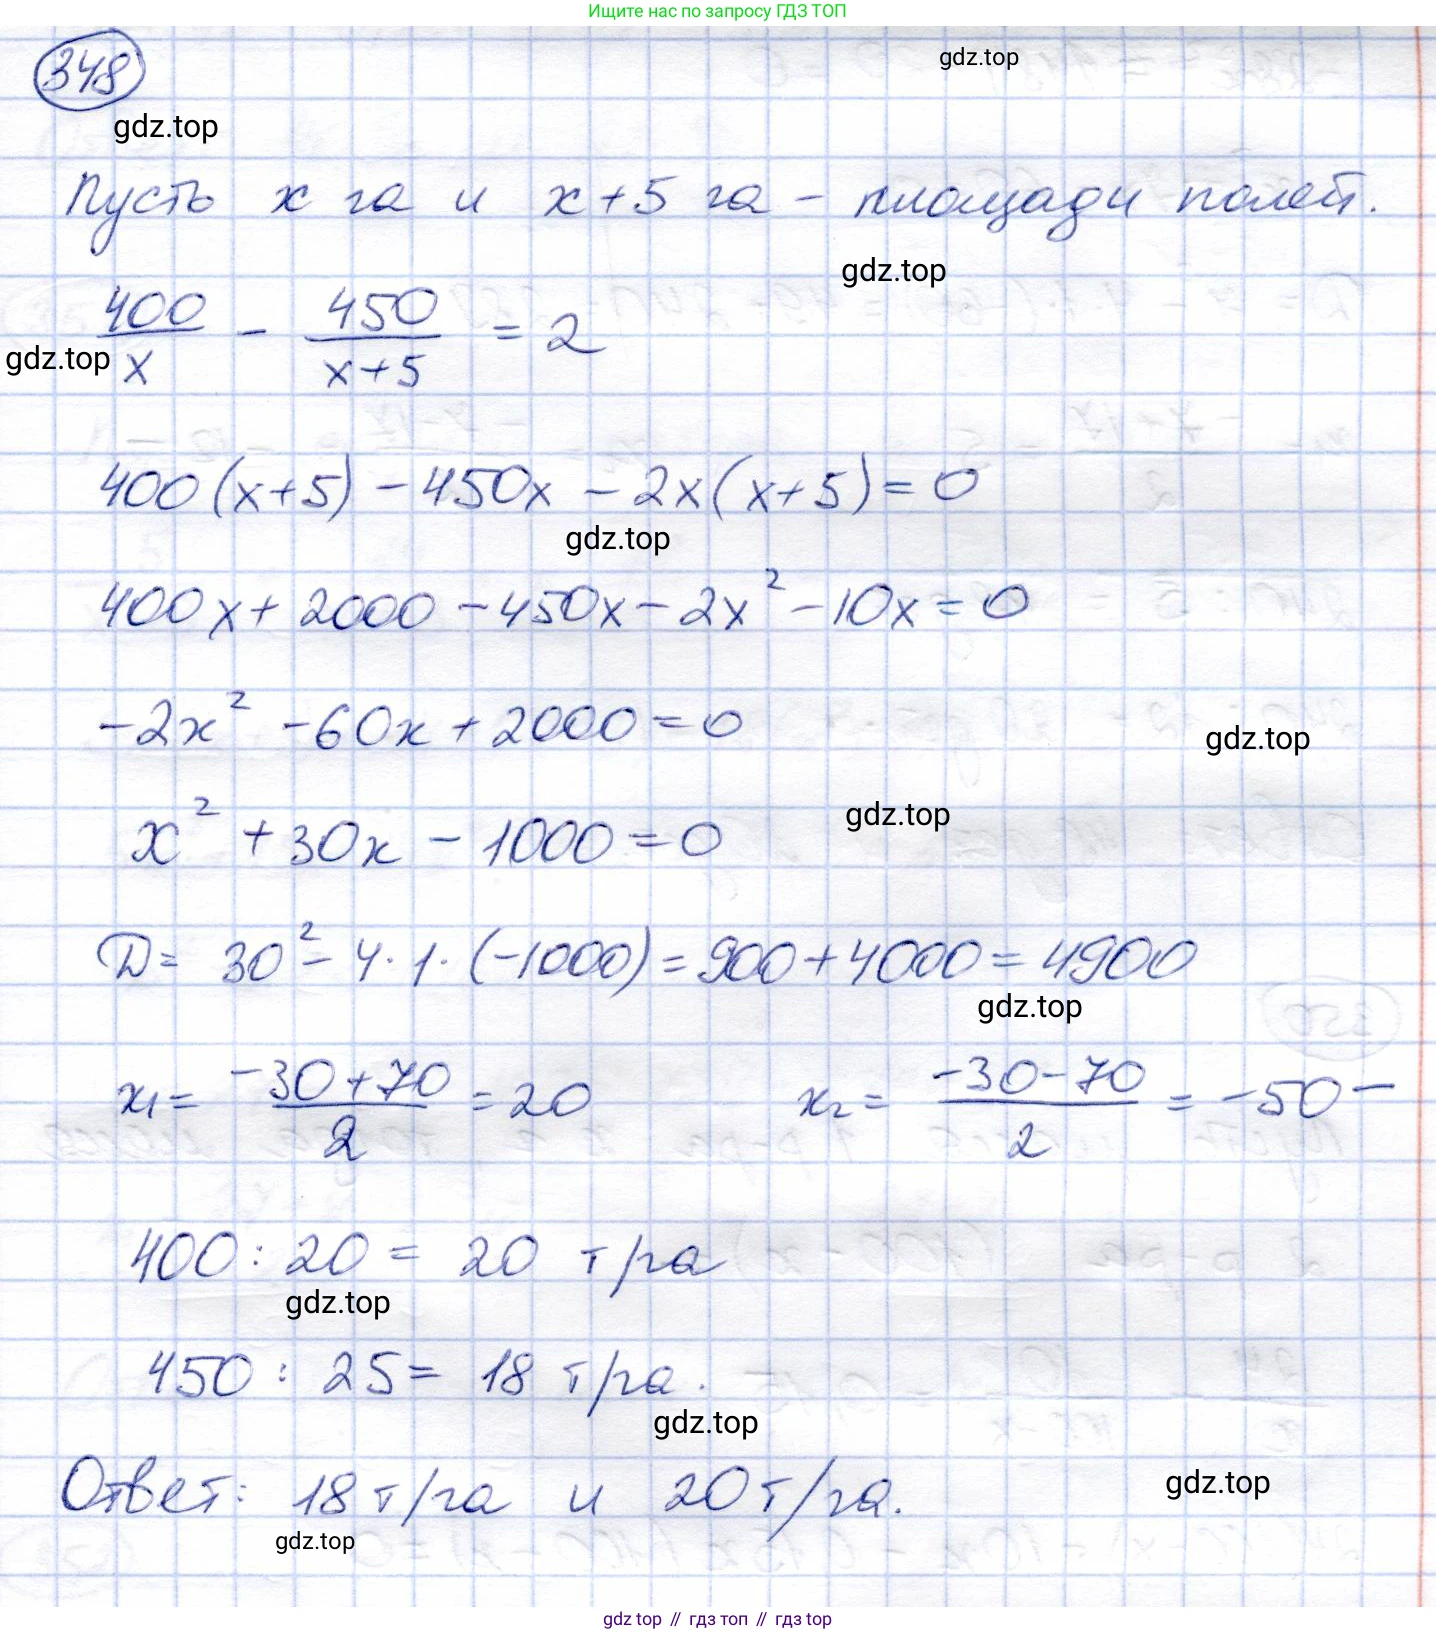 Ищите нас по запросу ГДЗ ТОП
348
gdz.top
gdz.top
Пусть x га и x+5 га – площади полей.
gdz.top
400/x - 450/(x+5) = 2
gdz.top
400(x+5) - 450x - 2x(x+5) = 0
gdz.top
400x + 2000 - 450x - 2x² - 10x = 0
-2x² - 60x + 2000 = 0
gdz.top
x² + 30x - 1000 = 0
gdz.top
D = 30² - 4·1·(-1000) = 900 + 4000 = 4900
gdz.top
x₁ = (-30+70)/2 = 20 x₂ = (-30-70)/2 = -50 –
400 : 20 = 20 т/га
gdz.top
450 : 25 = 18 т/га.
gdz.top
Ответ: 18 т/га и 20 т/га.
gdz.top
gdz.top
gdz top // гдз топ // гдз top